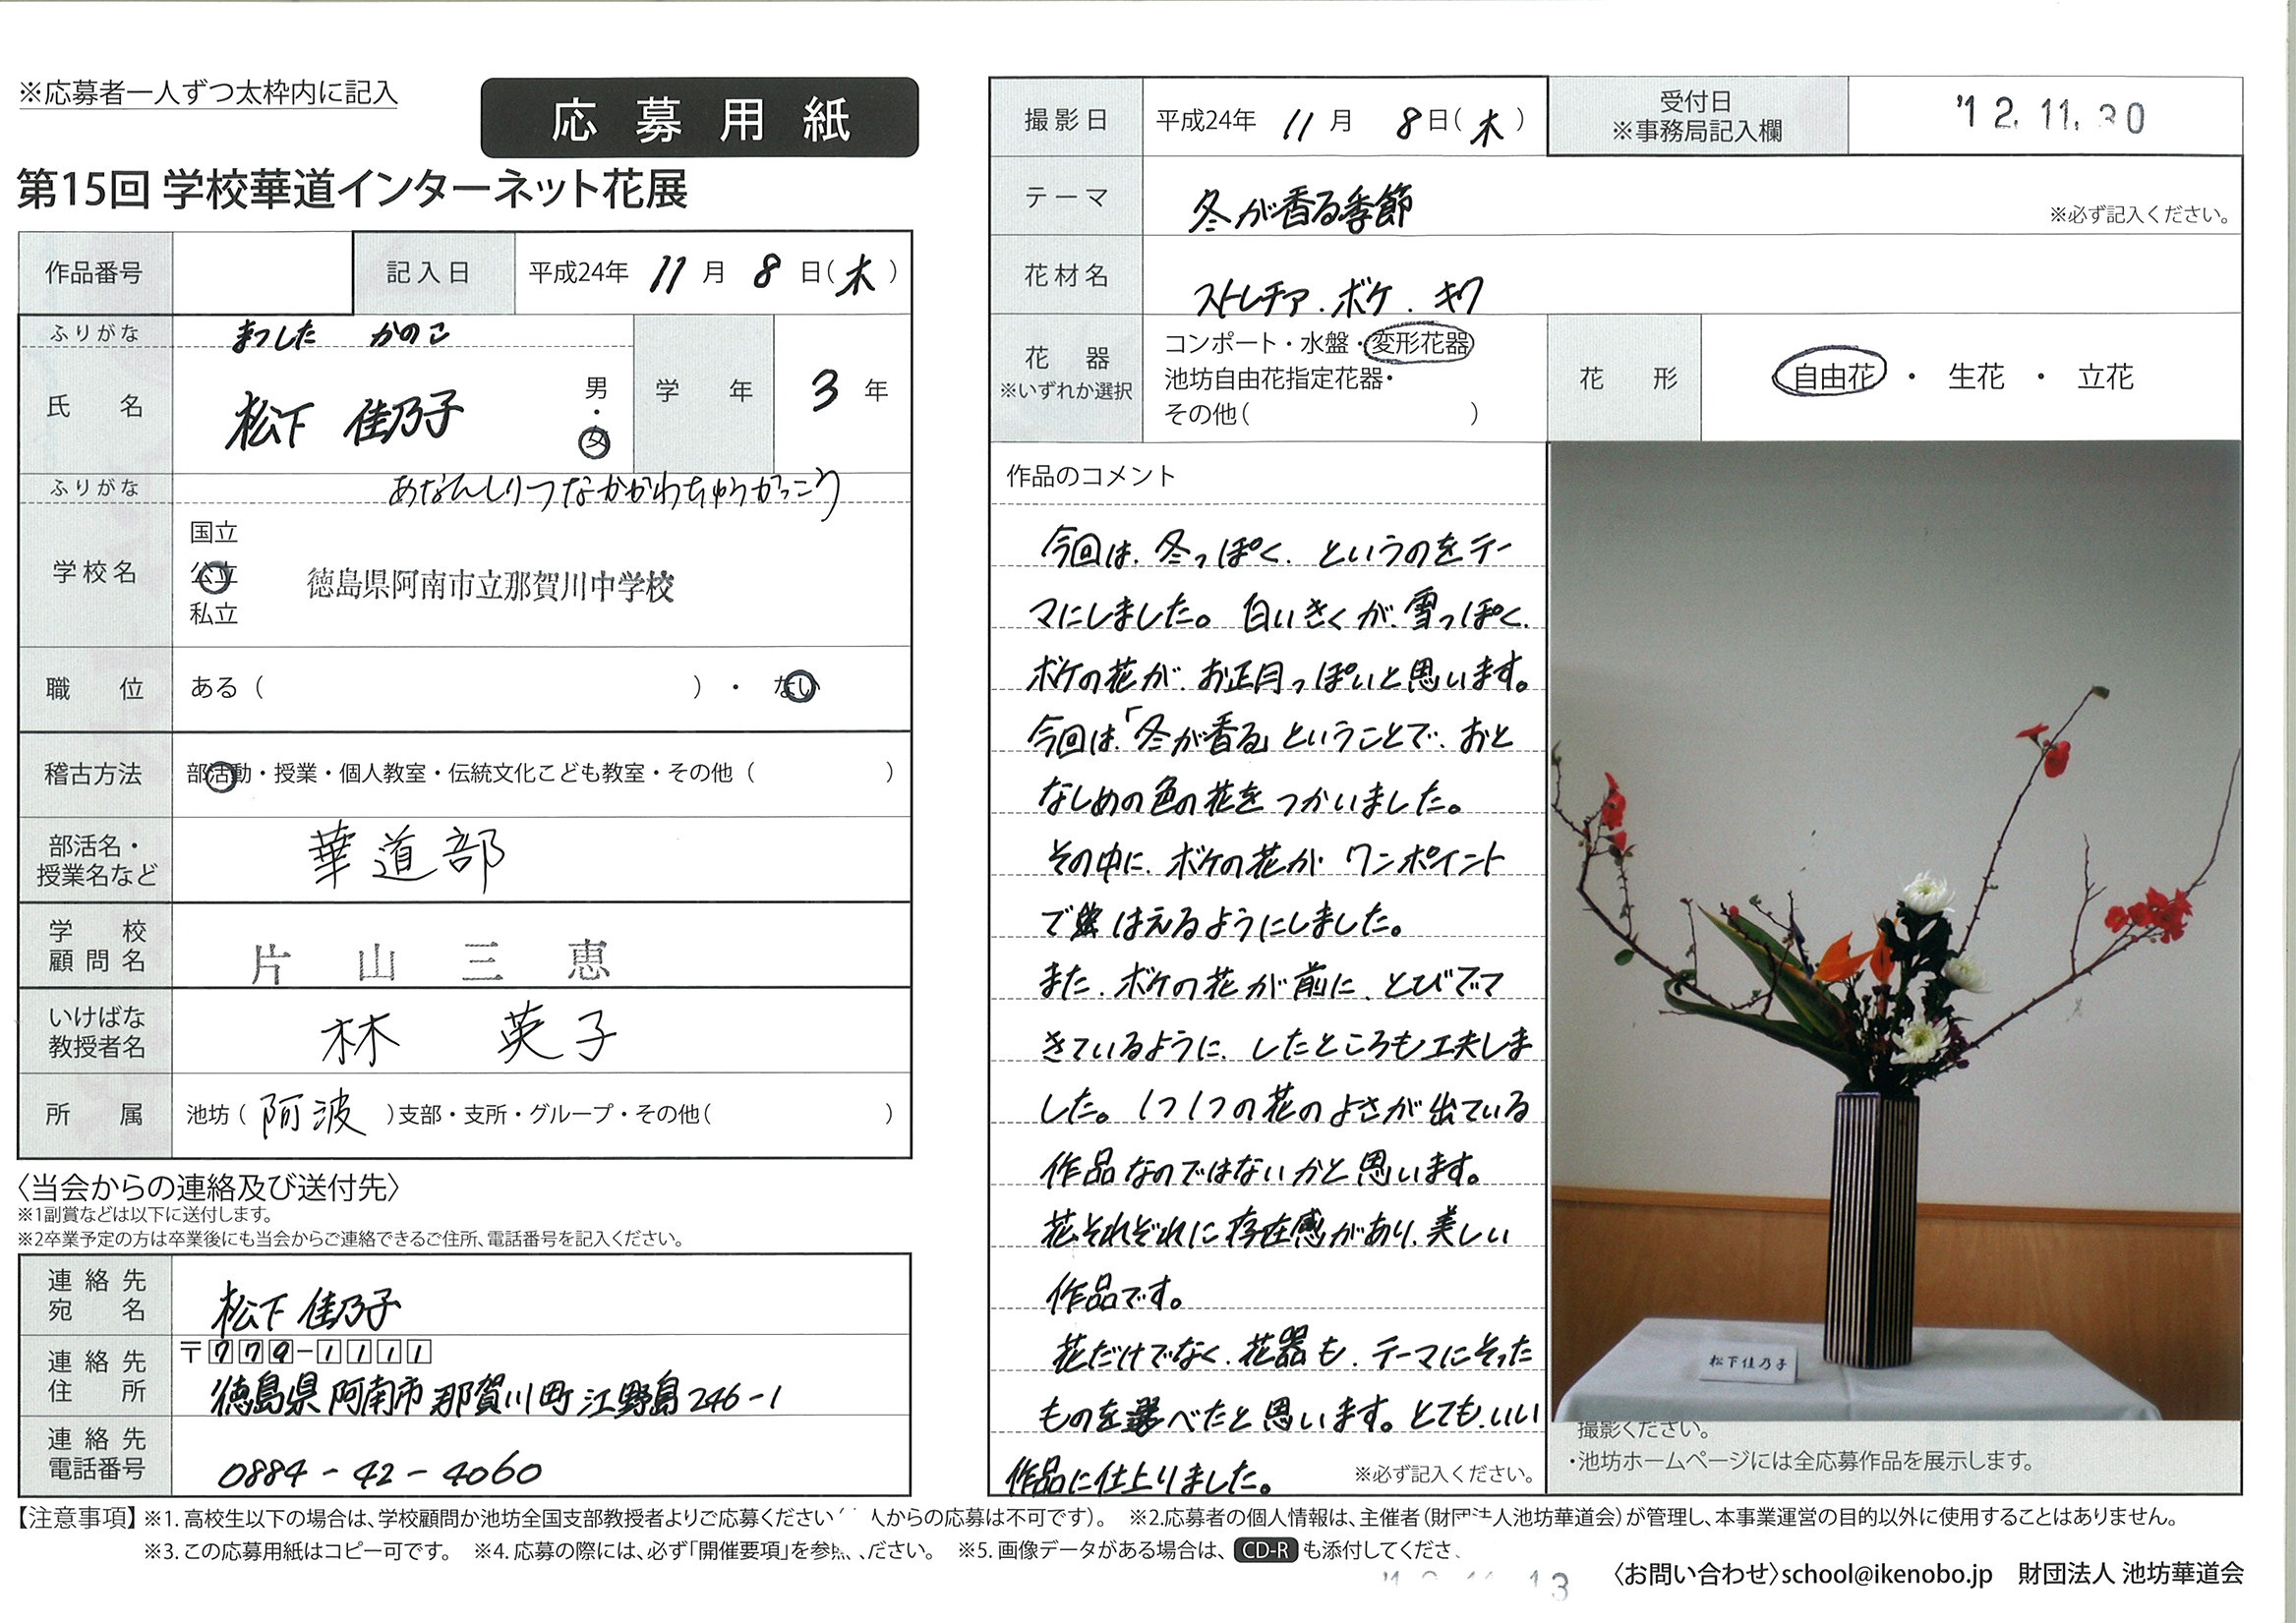 ※応募者一人ずつ太枠内に記入
応募用紙
第15回 学校華道インターネット花展
作品番号
記入日 平成24年 11月 8日(木)
ふりがな まつした かのこ
氏名 松下 佳乃子 男・女
学年 3年
ふりがな あなんしりつなかがわちゅうがっこう
学校名 国立 公立 私立 徳島県阿南市立那賀川中学校
職位 ある( )・ ない
稽古方法 部活動・授業・個人教室・伝統文化こども教室・その他( )
部活名・授業名など 華道部
学校顧問名 片山三恵
いけばな教授者名 林 英子
所属 池坊(阿波)支部・支所・グループ・その他( )
〈当会からの連絡及び送付先〉
※1副賞などは以下に送付します。
※2卒業予定の方は卒業後にも当会からご連絡できるご住所、電話番号を記入ください。
連絡先宛名 松下 佳乃子
連絡先住所 〒779-1111
徳島県阿南市那賀川町江野島246-1
連絡先電話番号 0884-42-4060
撮影日 平成24年 11月 8日(木)
受付日 ※事務局記入欄 '12.11.30
テーマ 冬が香る季節 ※必ず記入ください。
花材名 ストレチア.ボケ.キク
花器 ※いずれか選択
コンポート・水盤・変形花器
池坊自由花指定花器・
その他( )
花形 自由花 ・ 生花 ・ 立花
作品のコメント
今回は、冬っぽく、というのをテー
マにしました。白いきくが、雪っぽく、
ボケの花が、お正月っぽいと思います。
今回は、「冬が香る」ということで、おと
なしめの色の花をつかいました。
その中に、ボケの花が ワンポイント
で はえるようにしました。
また、ボケの花が前に、とびでて
きているように、したところも工夫しま
した。1つ1つの花のよさが出ている
作品なのではないかと思います。
花それぞれに存在感があり、美しい
作品です。
花だけでなく、花器も、テーマにそった
ものを選べたと思います。とても、いい
作品に仕上りました。 ※必ず記入ください。
松下佳乃子
撮影ください。
・池坊ホームページには全応募作品を展示します。
【注意事項】※1. 高校生以下の場合は、学校顧問か池坊全国支部教授者よりご応募ください 人からの応募は不可です)。 ※2.応募者の個人情報は、主催者(財団法人池坊華道会)が管理し、本事業運営の目的以外に使用することはありません。
※3. この応募用紙はコピー可です。 ※4. 応募の際には、必ず「開催要項」を参照 ください。 ※5. 画像データがある場合は、CD-R も添付してくださ
〈お問い合わせ〉school@ikenobo.jp 財団法人 池坊華道会